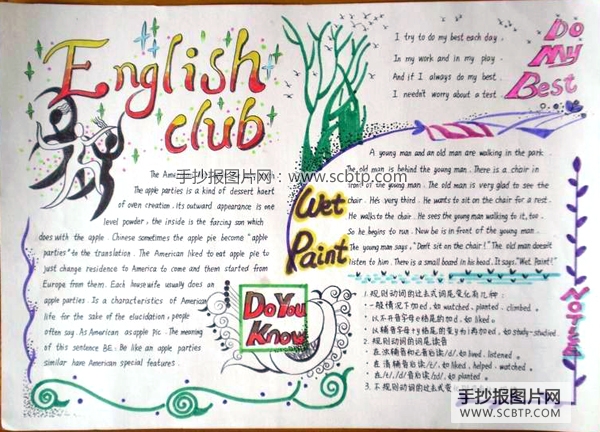 English
club
I try to do my best each day.
In my work and in my play.
And if I always do my best.
I needn't worry about a test.
Do
My
Best
手抄报图片网:www.scbtp.com
The Ame
The apple parties is a kind of dessert
of oven creation. its outward appearance is one
level powder, the inside is the forcing son which
does with the apple. Chinese sometimes the apple pie become "apple
parties" to the translation. The American liked to eat apple pie to
just change residence to America to come and them started from
Europe from them. Each housewife usually does an
apple parties. Is a characteristics of American
life for the sake of the elucidation, people
often say. As American as apple pie. The meaning
of this sentence BE: Be like an apple parties
similar have American special features.
Wet
Paint
A young man and an old man are walking in the park.
The old man is behind the young man. There is a chair in
front of the young man. The old man is very glad to see the
chair. He's very third. He wants to sit on the chair for a rest.
He walks to the chair. He sees the young man walking to it, too.
So he begins to run. Now he is in front of the young man.
The young man says, "Don't sit on the chair!" The old man doesn't
listen to him. There is a small board in his head. It says, "Wet Paint!"
Do You
Know
1. 规则动词的过去式词是变化有几种
一般情况下加ed, 如 watched, planted, climbed.
以不开音字母e结尾的加d, 如 liked.
以辅音字母+y结尾的变y为i再加ed, 如 study-studied.
2. 规则动词的词是读音
在浊辅音和元音后读/d/, 如 lived, listened.
在清辅音后读/t/, 如 liked, helped, watched.
在/t/,/d/音后读/id/, 如 planted.
3. 不规则动词的过去式变
手抄报图片网
WWW.SCBTP.COM